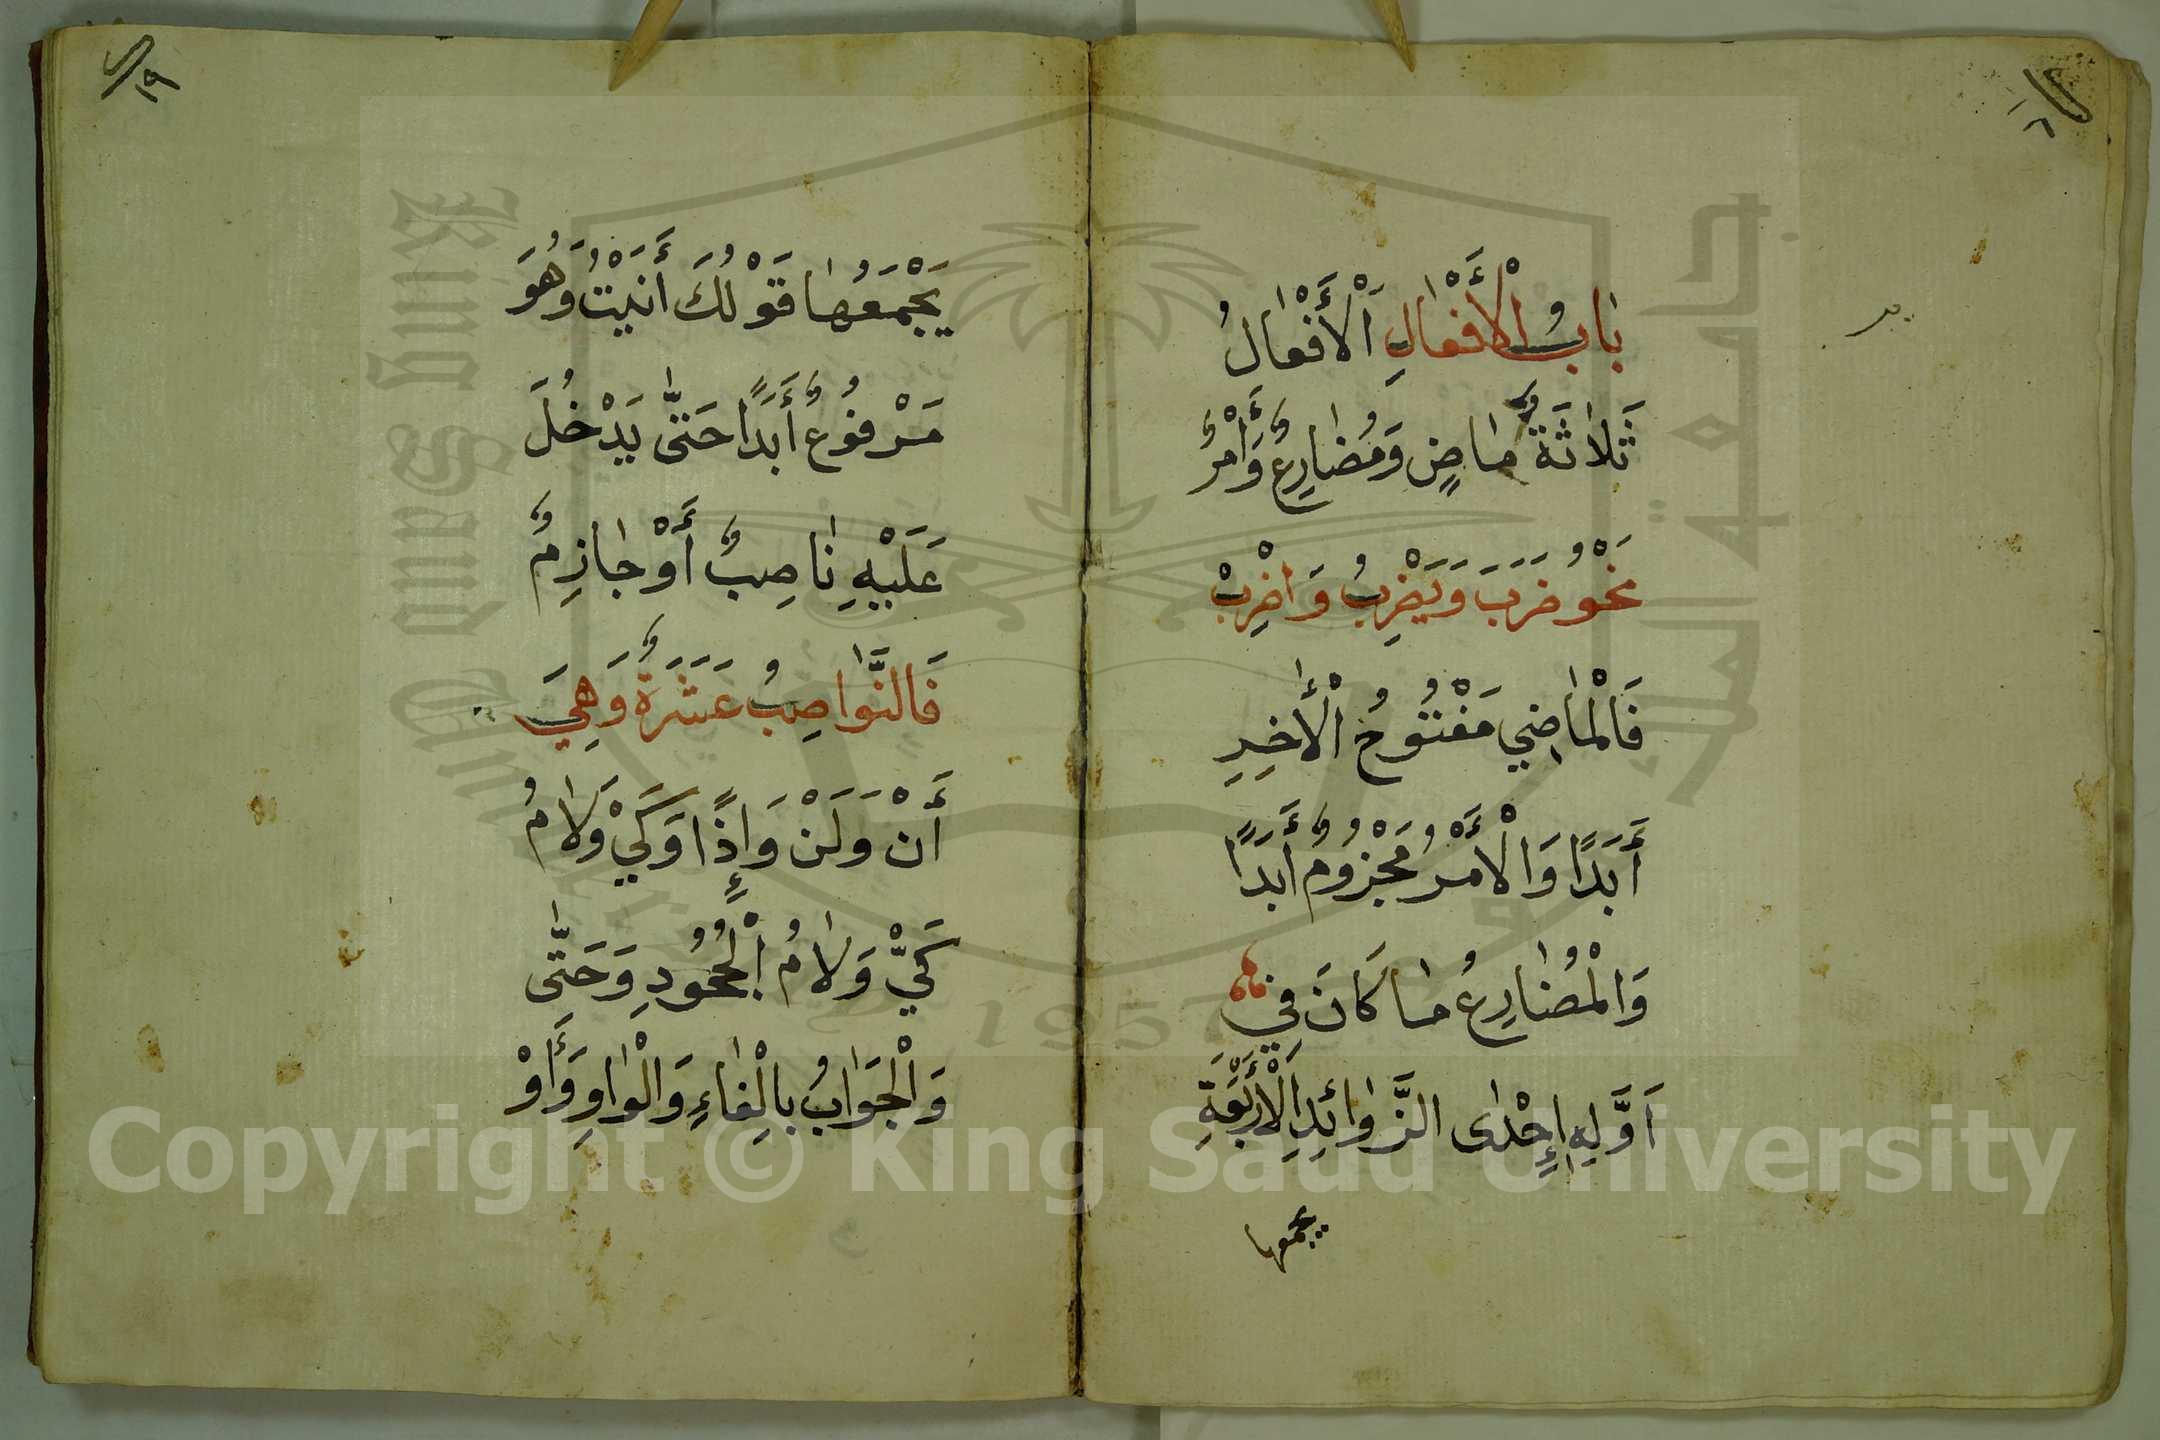 بَابُ الْأَفْعَالِ اَلْأَفْعَالُ
ثَلَاثَةٌ مَاضٍ وَمُضَارِعٌ وَأَمْرٌ
نَحْوُ ضَرَبَ وَيَضْرِبُ وَاضْرِبْ
فَالْمَاضِي مَفْتُوحُ الْأَخِرِ
أَبَدًا وَالْأَمْرُ مَجْزُومٌ أَبَدًا
وَالْمُضَارِعُ مَا كَانَ فِي
اَوَّلِهِ إِحْدَى الزَّوَائِدِ الْأَرْبَعَةِ
يجمعها
يَجْمَعُهَا قَوْلُكَ أَنَيْتُ وَهُوَ
مَرْفُوعٌ أَبَدًا حَتَّى يَدْخُلَ
عَلَيْهِ نَاصِبٌ أَوْ جَازِمٌ
فَالنَّوَاصِبُ عَشَرَةٌ وَهِيَ
أَنْ وَلَنْ وَإِذًا وَكَيْ وَلَامُ
كَيْ وَلَامُ الْجُحُودِ وَحَتَّى
وَالْجَوَابُ بِالْفَاءِ وَالْوَاوِ وَأَوْ
١٩
King Saud University
جامعة الملك
1957
Copyright © King Saud University